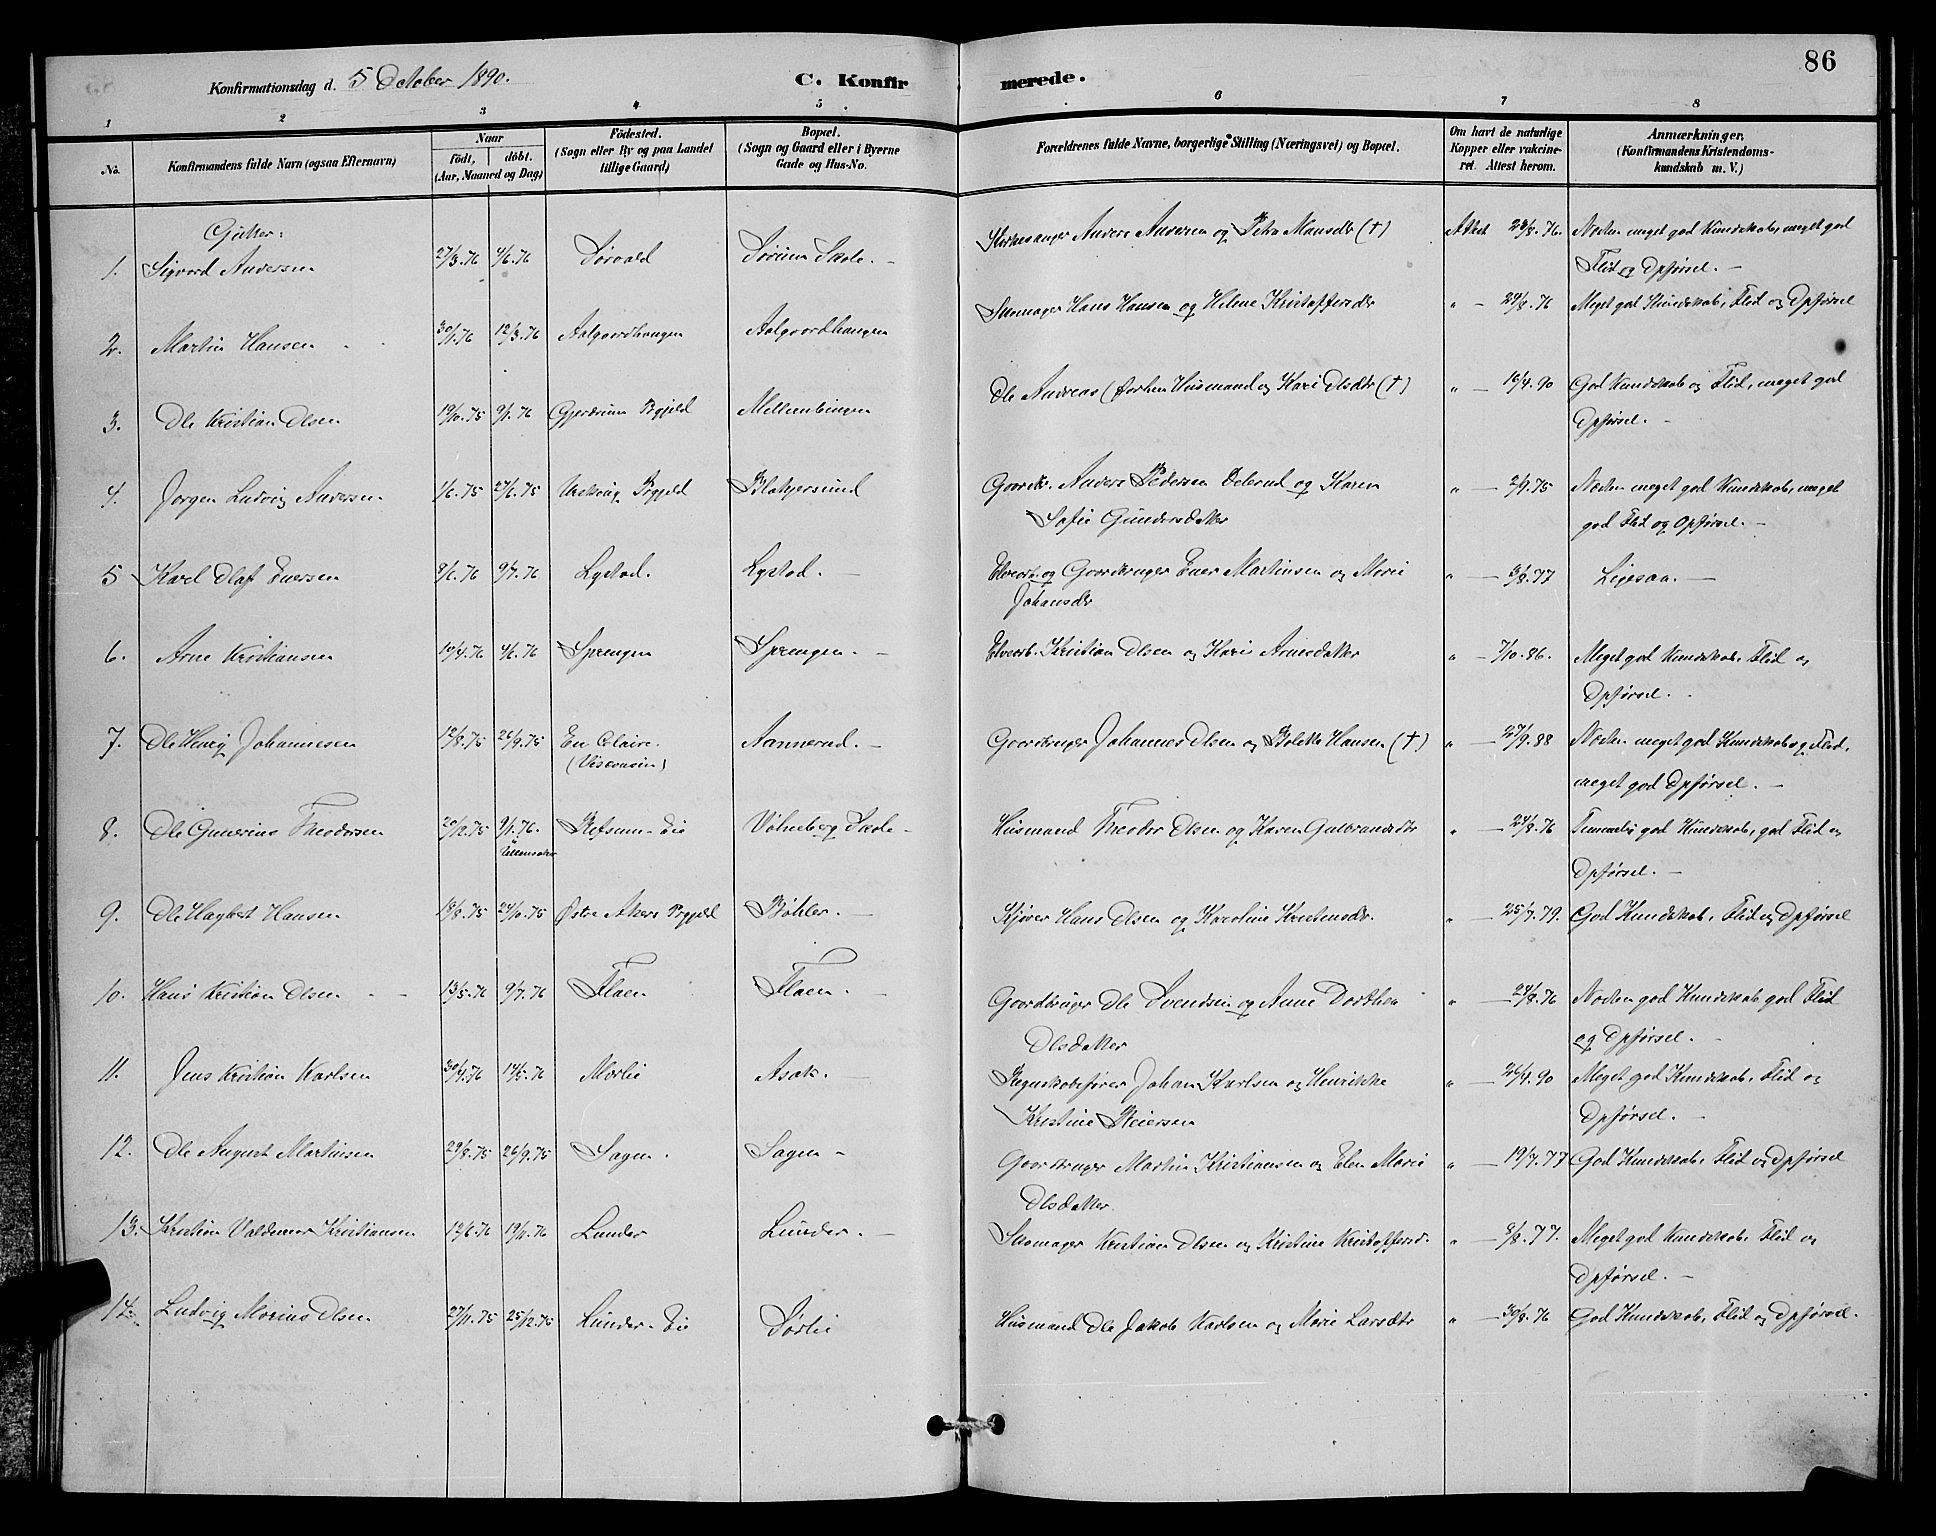 86
Konfirmationsdag d. 5 October 1890.
C. Konfirmerede.
1 2 3 4 5 6 7 8
No.
Konfirmandens fulde Navn (ogsaa Efternavn)
Naar
födt, döbt.
(Aar, Maaned og Dag)
Födested.
(Sogn eller By og paa Landet
tillige Gaard)
Bopæl.
(Sogn og Gaard eller i Byerne
Gade og Hus-No.
Forældrenes fulde Navne, borgerlige Stilling (Næringsvei) og Bopæl.
Om havt de naturlige
Kopper eller vakcine-
ret. Attest herom.
Anmærkninger.
(Konfirmandens Kristendoms-
kundskab m. V.)
Gutter:
1. Sigvard Andersen 27/3.76 4/6.76 Sørvald Sørum Skole. - Kirkesanger Anders Andersen og Petra Mansdtr (†) Attest 28/8.76. Næsten meget god Kundskab, meget god
Flid og Opførsel. -
2. Martin Hansen 30/1.76 12/3.76 Aalgaardhaugen Aalgaardhaugen Skomager Hans Hansen og Helene Kristoffersdtr " - 29/8.76 Meget god Kundskab, Flid og Opførsel
3. Ole Kristian Olsen 19/10.75 9/1.76 Gjerdrum Prgjeld Mellembingen Ole Andreas (forhen Husmand og Kari Olsdtr (†) " - 16/4.90 God Kundskab og Flid, meget god
Opførsel. -
4. Jørgen Ludvig Andersen 1/6.75 27/6.75 Urskoug Prgjeld Blakjersund Gaardbr. Anders Pedersen Ødeud og Karen
Sofie Gundersdatter " - 2/9.75 Næsten meget god Kundskab, meget
god Flid og Opførsel. -
5 Karl Olaf Eversen 8/6.76 9/7.76 Lystad. Lystad. - Elvearb. og Gaardbruger Ever Martinsen og Marie
Johansdtr " - 3/8.77 Ligesaa. -
6. Arne Kristiansen 10/4.76 4/6.76 Sprengen Sprengen. - Elvearb. Kristian Olsen og Kari Arnesdatter " - 7/10.86. Meget god Kundskab, Flid og
Opførsel. -
7. Ole Henrij Johannesen 12/8.75 26/9.75 Eu Claire.
(Visconsin) Aannerud. - Gaardbruger Johannes Olsen og Bolette Hansen (†) " - 27/9.88 Næsten meget god Kundskab og Flid,
meget god Opførsel. -
8. Ole Gunerius Theodorsen 20/12.75 9/1.76.
i Ullensaker Refsum-Eie Vølneberg Skole - Husmand Theodor Olsen og Karen Gulbrandsdtr " - 24/8.76 Temmelig god Kundskab, god Flid og
Opførsel. -
9. Ole Hagbart Hansen 18/8.75 24/10.75 Østre Akers Prgjeld Bøhler. - Kjører Hans Olsen og Karoline Kristensdtr. " - 25/7.79. God Kundskab, Flid og Opførsel
10. Hans Kristian Olsen 13/5.76 9/7.76 Flaen Flaen. - Gaardbruger Ole Svendsen og Anne Dorthea
Olsdatter " - 24/8.76 Næsten god Kundskab god Flid
og Opførsel. -
11. Jens Kristian Karlsen 30/4.76 14/5.76 Morlie Asak. - Regnskabsfører Johan Karlsen og Henrikke
Kristine Reiersen " - 26/4.90 Meget god Kundskab, Flid og
Opførsel. -
12. Ole August Martinsen 29/8.75 26/9.75 Sagen. Sagen - Gaardbruger Martin Kristiansen og Elen Marie
Olsdatter. " - 19/7.77 God Kundskab, Flid og Opførsel
13. Kristian Valdemar Kristiansen 12/6.76 19/11.76 Lunder Lunder. - Skomager Kristian Olsen og Kristine Kristoffersd. " - 8/8.77. Meget god Kundskab, Flid og
Opførsel. -
14. Ludvig Marius Olsen 27/11.75 25/12.75 Lunder-Eie Sørlie Husmand Ole Jakob Karlsen og Marie Larsdtr " - 30/8.76 God Kundskab, Flid og Opførsel.